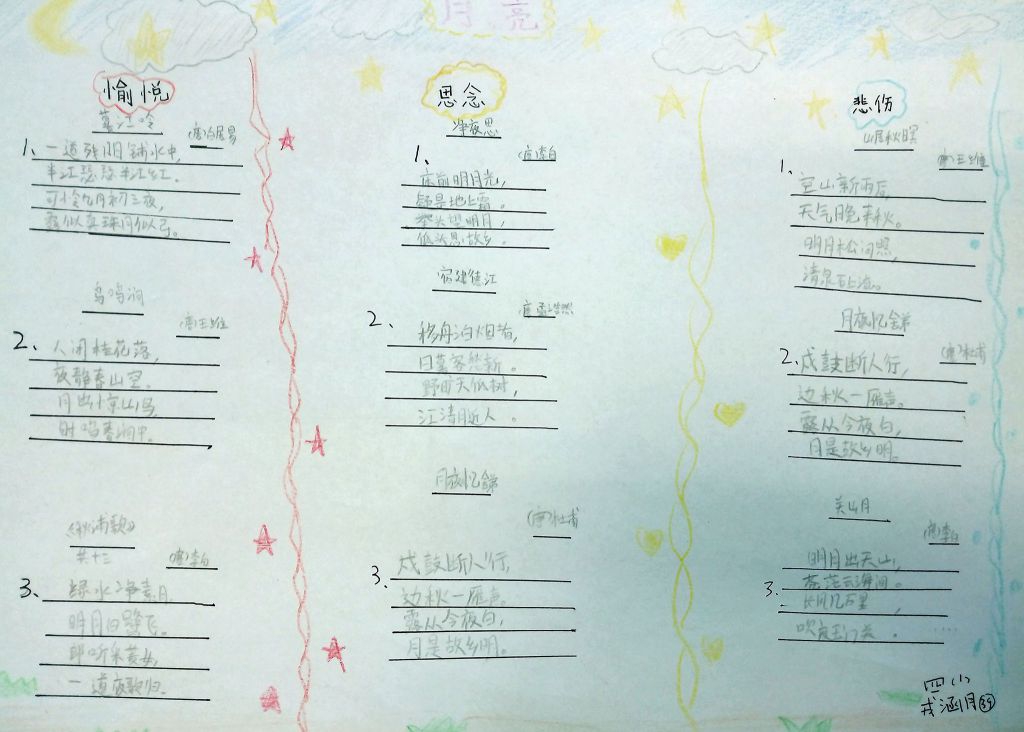 月亮
愉悦
暮江吟
(唐)白居易
1、一道残阳铺水中,
半江瑟瑟半江红。
可怜九月初三夜,
露似真珠月似弓。
鸟鸣涧
(唐)王维
2、人闲桂花落,
夜静春山空。
月出惊山鸟,
时鸣春涧中。
《秋浦歌》
共十三
(唐)李白
3、绿水净素月,
明月白鹭飞。
郎听采菱女,
一道夜歌归。
思念
静夜思
(唐)李白
1、床前明月光,
疑是地上霜。
举头望明月,
低头思故乡。
宿建德江
(唐)孟浩然
2、移舟泊烟渚,
日暮客愁新。
野旷天低树,
江清月近人。
月夜忆舍弟
(唐)杜甫
3、戍鼓断人行,
边秋一雁声。
露从今夜白,
月是故乡明。
悲伤
山居秋暝
(唐)王维
1、空山新雨后,
天气晚来秋。
明月松间照,
清泉石上流。
月夜忆舍弟
(唐)杜甫
2、戍鼓断人行,
边秋一雁声。
露从今夜白,
月是故乡明。
关山月
(唐)李白
3、明月出天山,
苍茫云海间。
长风几万里,
吹度玉门关。……
四(1)
戎涵月39